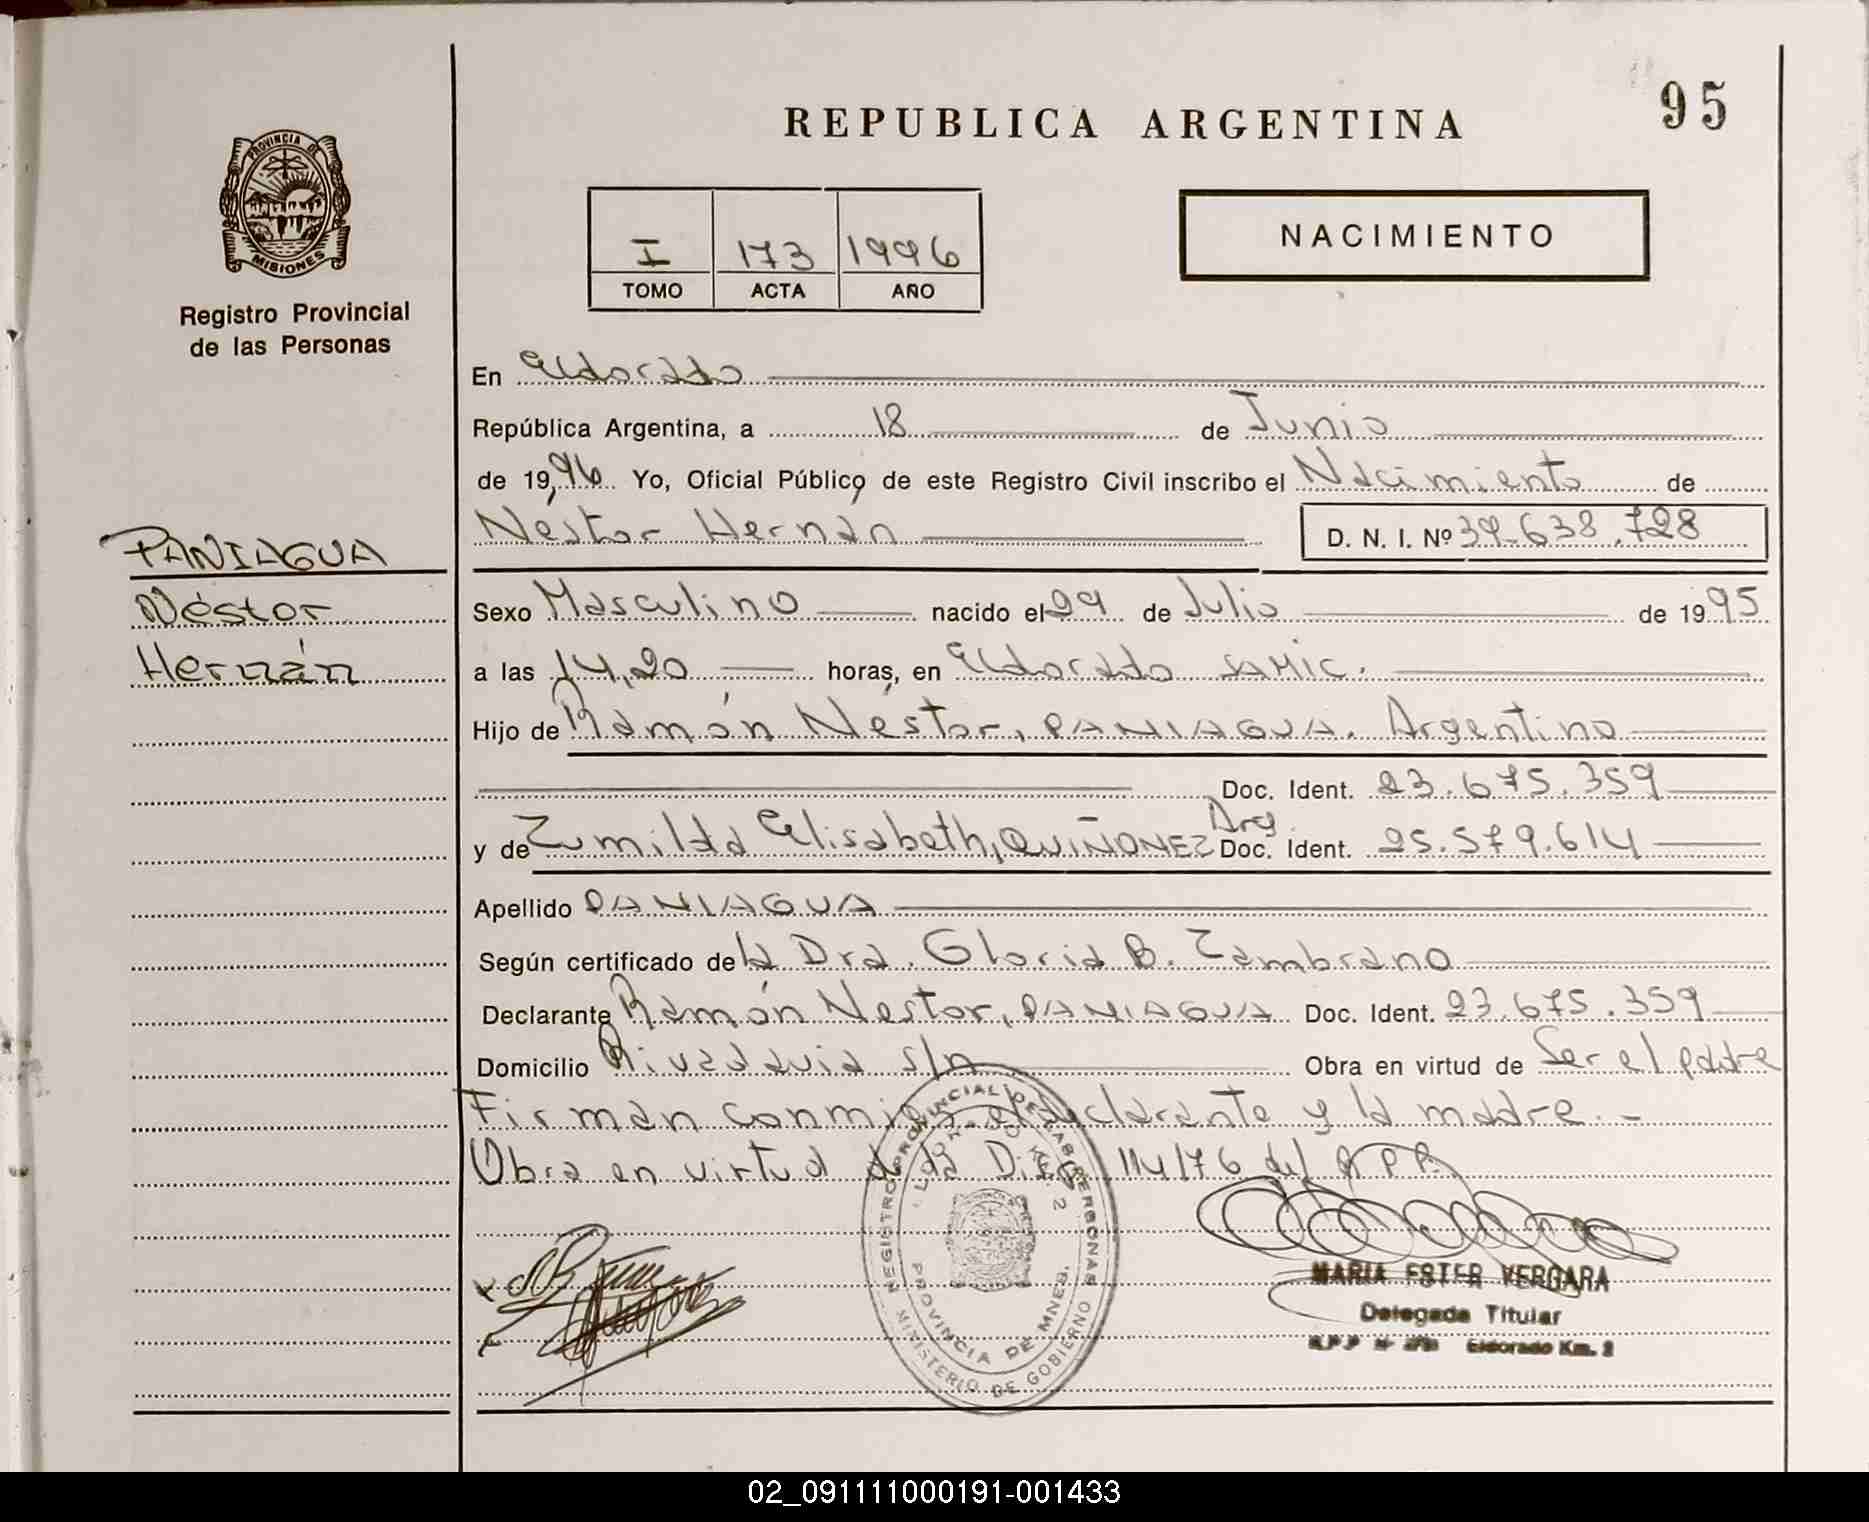 95
REPUBLICA ARGENTINA
PROVINCIA DE
MISIONES
Registro Provincial
de las Personas
I 173 1996
TOMO ACTA AÑO
NACIMIENTO
En Eldorado
República Argentina, a 18 de Junio
de 1996 Yo, Oficial Público de este Registro Civil inscribo el Nacimiento de
Néstor Hernán D. N. I. Nº 39.638.728
PANIAGUA
Néstor
Hernán
Sexo Masculino nacido el 29 de Julio de 1995
a las 14,20 horas, en Eldorado SAMIC.
Hijo de Ramón Néstor, PANIAGUA. Argentino
Doc. Ident. 23.675.359
y de Zumilda Elisabeth, QUIÑONEZ Arg. Doc. Ident. 25.579.614
Apellido PANIAGUA
Según certificado de la Dra. Gloria B. Zambrano
Declarante Ramón Nestor, PANIAGUA Doc. Ident. 23.675.359
Domicilio Rivadavia s/n Obra en virtud de Ser el padre
Firman conmigo el declarante y la madre.-
Obra en virtud de la 114/76 del R.P.P.
REGISTRO PROVINCIAL DE LAS PERSONAS
ELDORADO KM 2
PROVINCIA DE MNES.
MINISTERIO DE GOBIERNO
MARIA ESTER VERGARA
Delegada Titular
R.P.P. Eldorado Km. 2
02_091111000191-001433